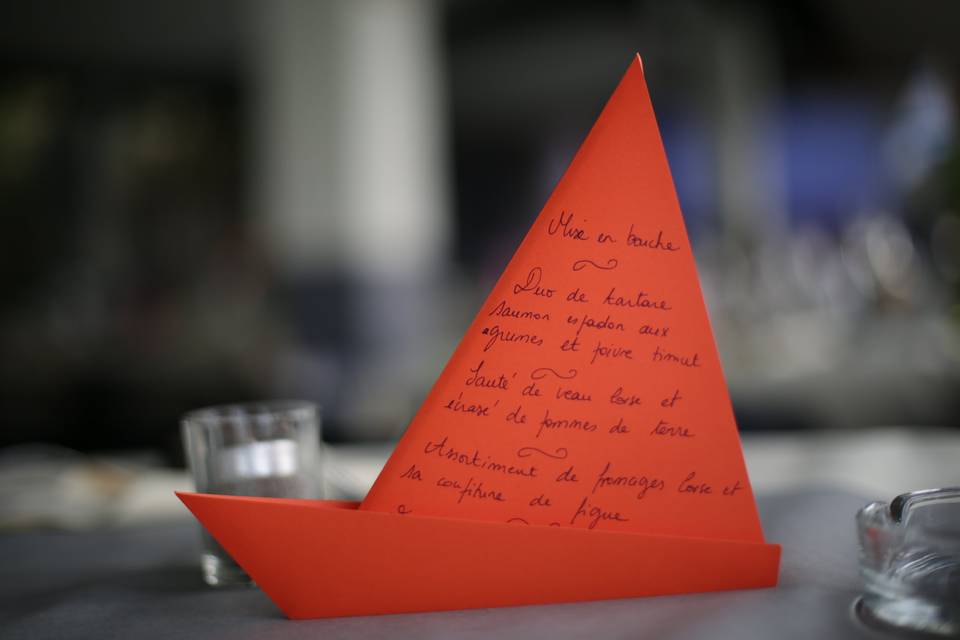 Mise en bouche
Duo de tartare
saumon espadon aux
agrumes et poivre timut
Sauté de veau Corse et
écrasé de pommes de terre
Assortiment de fromages Corse et
sa confiture de figue